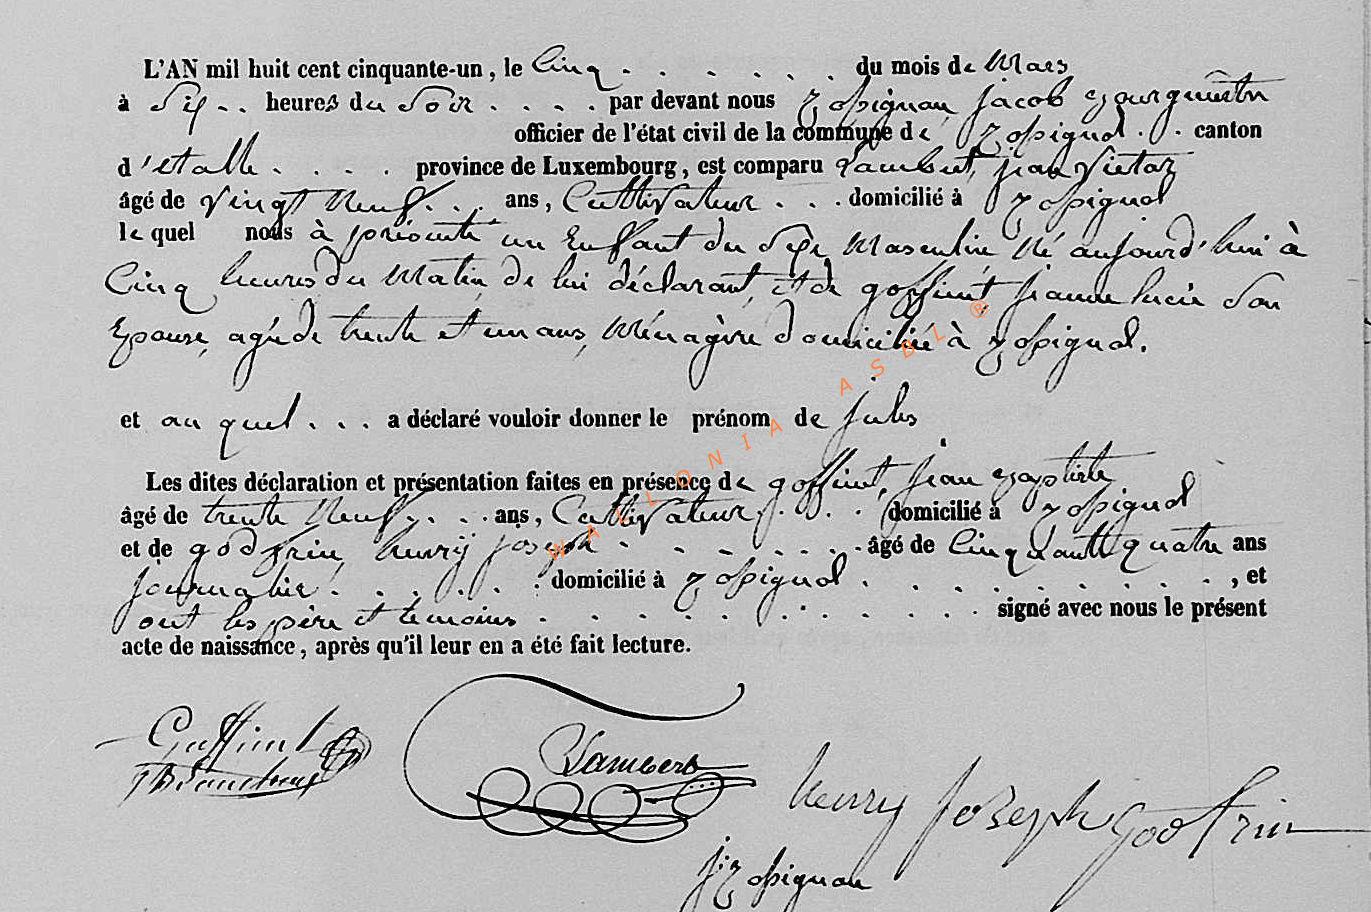 L'AN mil huit cent cinquante-un, le Cinq . . . . . . . du mois de Mars
à Six . . heures du Soir . . . . par devant nous Rossignon, jacob Bourguemetre
officier de l'état civil de la commune de Rossignol . . . canton
d'etalle . . . . province de Luxembourg, est comparu Lambert, jean Victor
âgé de Vingt Neuf . . . ans, Cultivateur . . . domicilié à Rossignol
le quel nous à présenté un Enfant du Sexe Masculin Né aujourd'hui à
Cinq heures du Matin, de lui déclarant, et de goffinet, jeanne lucie Son
Epouse, agée de trente et un ans, Ménagère domiciliée à Rossignol.
et au quel . . . a déclaré vouloir donner le prénom de jules
Les dites déclaration et présentation faites en présence de goffinet, jean Baptiste
âgé de trente Neuf . . . ans, Cultivateur . . . . domicilié à Rossignol
et de godfrin, henry joseph . . . . . . . âgé de Cinquante quatre ans
journalier . . . . . . domicilié à Rossignol . . . . . . . . . , et
ont les père et temoins . . . . . . . . . . signé avec nous le présent
acte de naissance, après qu'il leur en a été fait lecture.
WALLONIA ASBL ®
Goffinet
Lambert
henry Joseph Godfrin
j: Rossignon